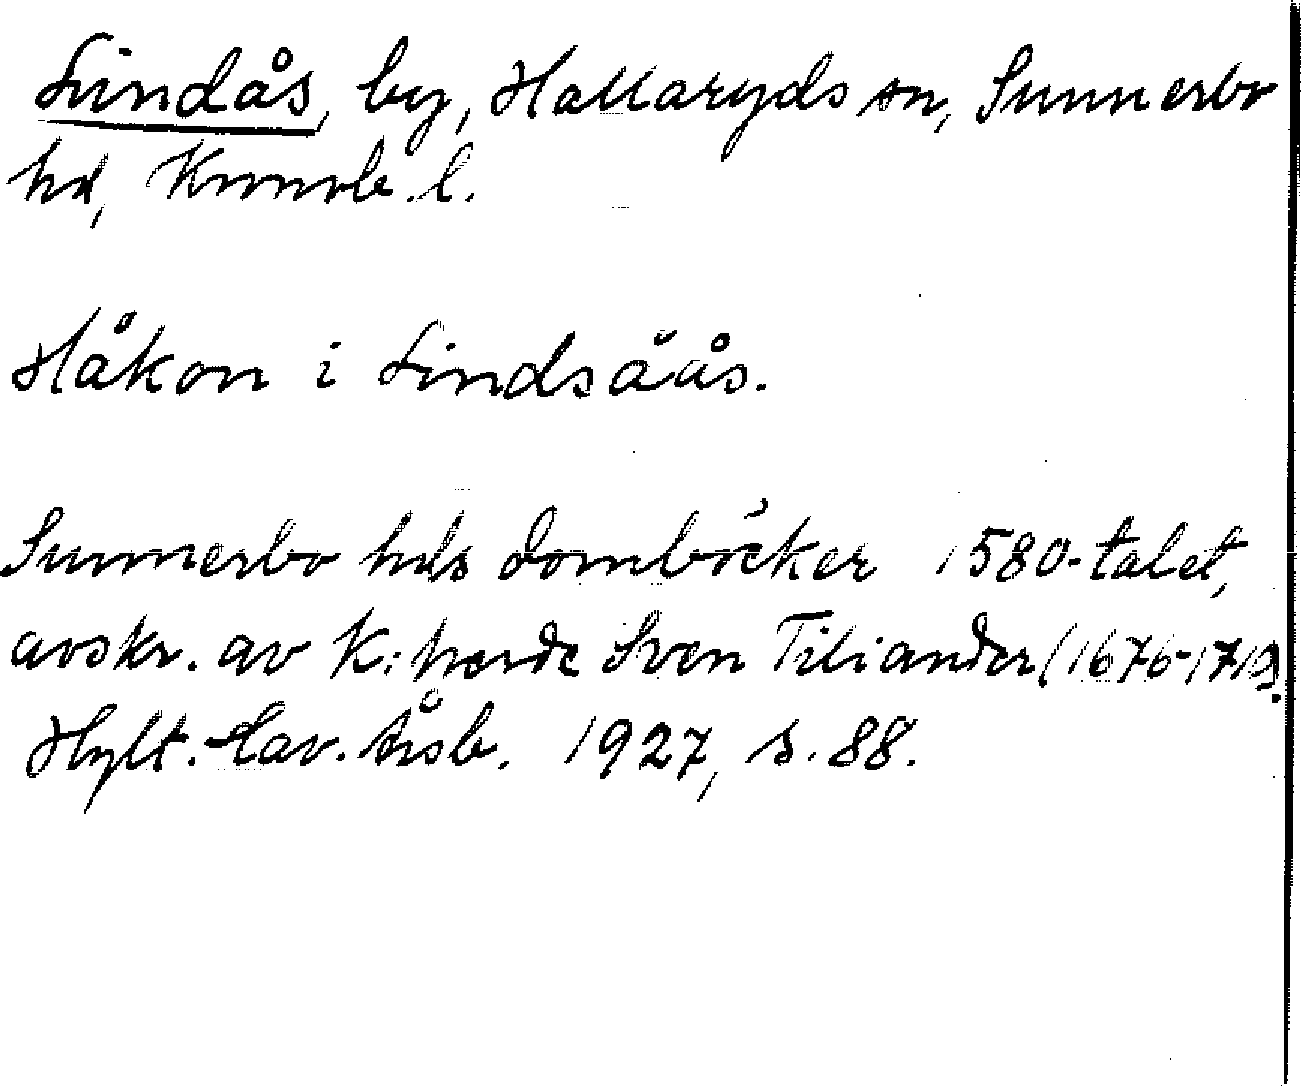 Lindås, by, Hallaryds sn, Sunnerbo
hd, Kronob. l.
Håkon i Lindsåås.
Sunnerbo hds domböcker 1580-talet,
avskr. av K:herde Sven Tiliander (1676-1710).
Hylt.-Cav. Årsb. 1927, s. 88.